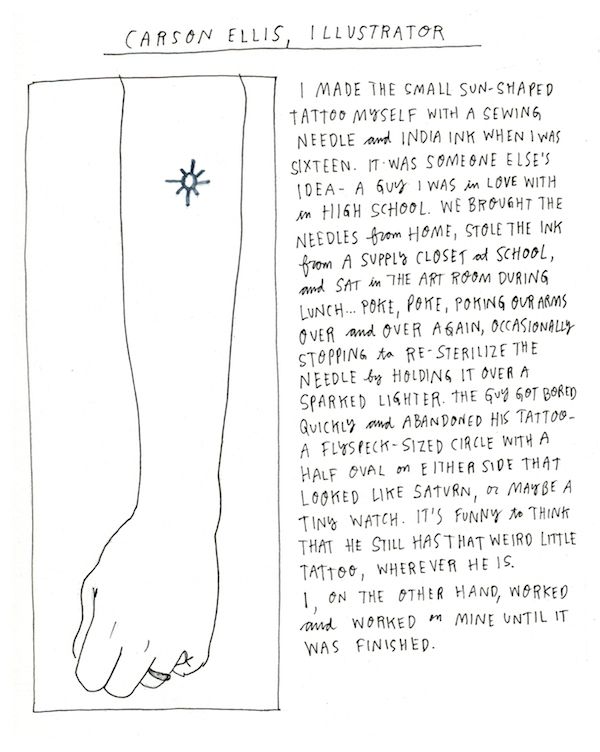 CARSON ELLIS, ILLUSTRATOR
I MADE THE SMALL SUN-SHAPED
TATTOO MYSELF WITH A SEWING
NEEDLE and INDIA INK WHEN I WAS
SIXTEEN. IT WAS SOMEONE ELSE'S
IDEA- A GUY I WAS in LOVE WITH
in HIGH SCHOOL. WE BROUGHT THE
NEEDLES from HOME, STOLE THE INK
from A SUPPLY CLOSET at SCHOOL,
and SAT in THE ART ROOM DURING
LUNCH... POKE, POKE, POKING OUR ARMS
OVER and OVER AGAIN, OCCASIONALLY
STOPPING to RE-STERILIZE THE
NEEDLE by HOLDING IT OVER A
SPARKED LIGHTER. THE GUY GOT BORED
QUICKLY and ABANDONED HIS TATTOO-
A FLYSPECK-SIZED CIRCLE WITH A
HALF OVAL on EITHER SIDE THAT
LOOKED LIKE SATURN, or MAYBE A
TINY WATCH. IT'S FUNNY to THINK
THAT HE STILL HAS THAT WEIRD LITTLE
TATTOO, WHEREVER HE IS.
I, ON THE OTHER HAND, WORKED
and WORKED on MINE UNTIL IT
WAS FINISHED.